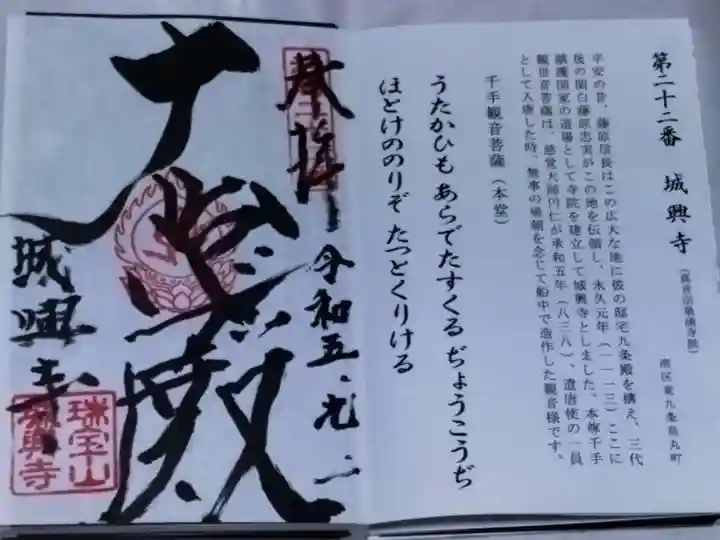 第二十二番 城興寺 (真言宗泉涌寺派)
南区東九条烏丸町
平安の昔、藤原信長はこの広大な地に彼の邸宅九条殿を構え、三代
後の関白藤原忠実がこの地を伝領し、永久元年(一一一三)ここに
鎮護国家の道場として寺院を建立して城興寺としました。本尊千手
観世音菩薩は、慈覚大師円仁が承和五年(八三八)、遣唐使の一員
として入唐した時、無事の帰朝を念じて船中で造作した観音様です。
千手観音菩薩(本堂)
うたかひも あらでたすくる ぢょうこうぢ
ほとけののりぞ たっとくりける
奉拝
令和五・九・二
大悲殿
城興寺
瑞宝山
城興寺